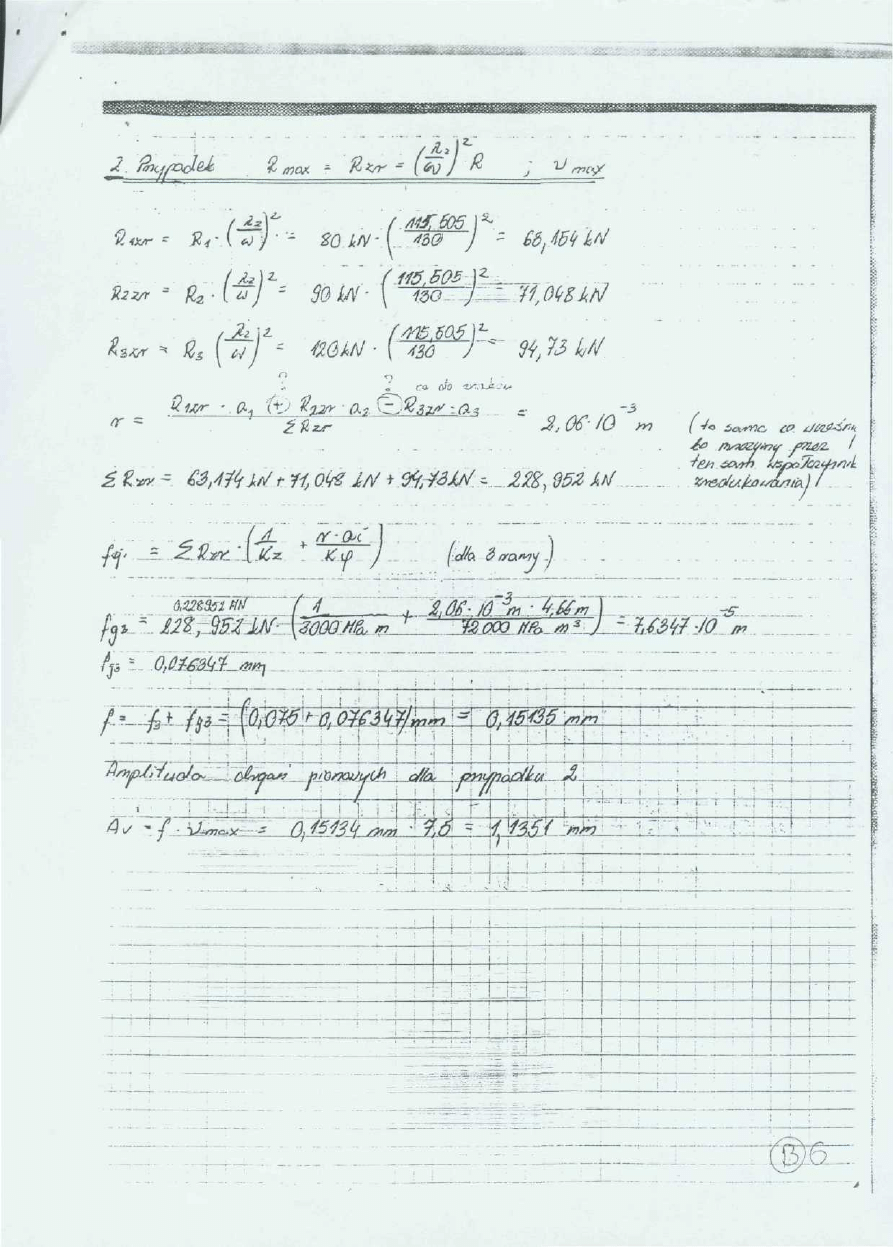 2. Przypadek R max = R zr = (λz/ω)² R ; ν max
R1zr = R1 · (λz/ω)² = 80 kN · (115,505/130)² = 63,154 kN
R2zr = R2 · (λz/ω)² = 90 kN · (115,505/130)² = 71,048 kN
R3zr = R3 (λz/ω)² = 120 kN · (115,505/130)² = 94,73 kN
? ? co do znaków
r = (R1zr · a1 (+) R2zr · a2 (−) R3zr · a3) / ΣRzr = 2,06·10⁻³ m (to samo co wcześniej
bo mnożymy przez
ten sam współczynnik
zredukowania)!
ΣRzr = 63,174 kN + 71,048 kN + 94,73 kN = 228,952 kN
fgi = ΣRzr · (1/Kz + r·ai/Kφ) (dla 3 ramy)
0,228952 MN
fg3 = 228,952 kN · (1/3000 MPa m + 2,06·10⁻³ m · 4,66 m/72000 MPa m³) = 7,6347·10⁻⁵ m
fg3 = 0,076347 mm
f = f3 + fg3 = (0,075 + 0,076347) mm = 0,15135 mm
Amplituda drgań pionowych dla przypadku 2
Av = f · νmax = 0,15134 mm · 7,5 = 1,1351 mm
B 6